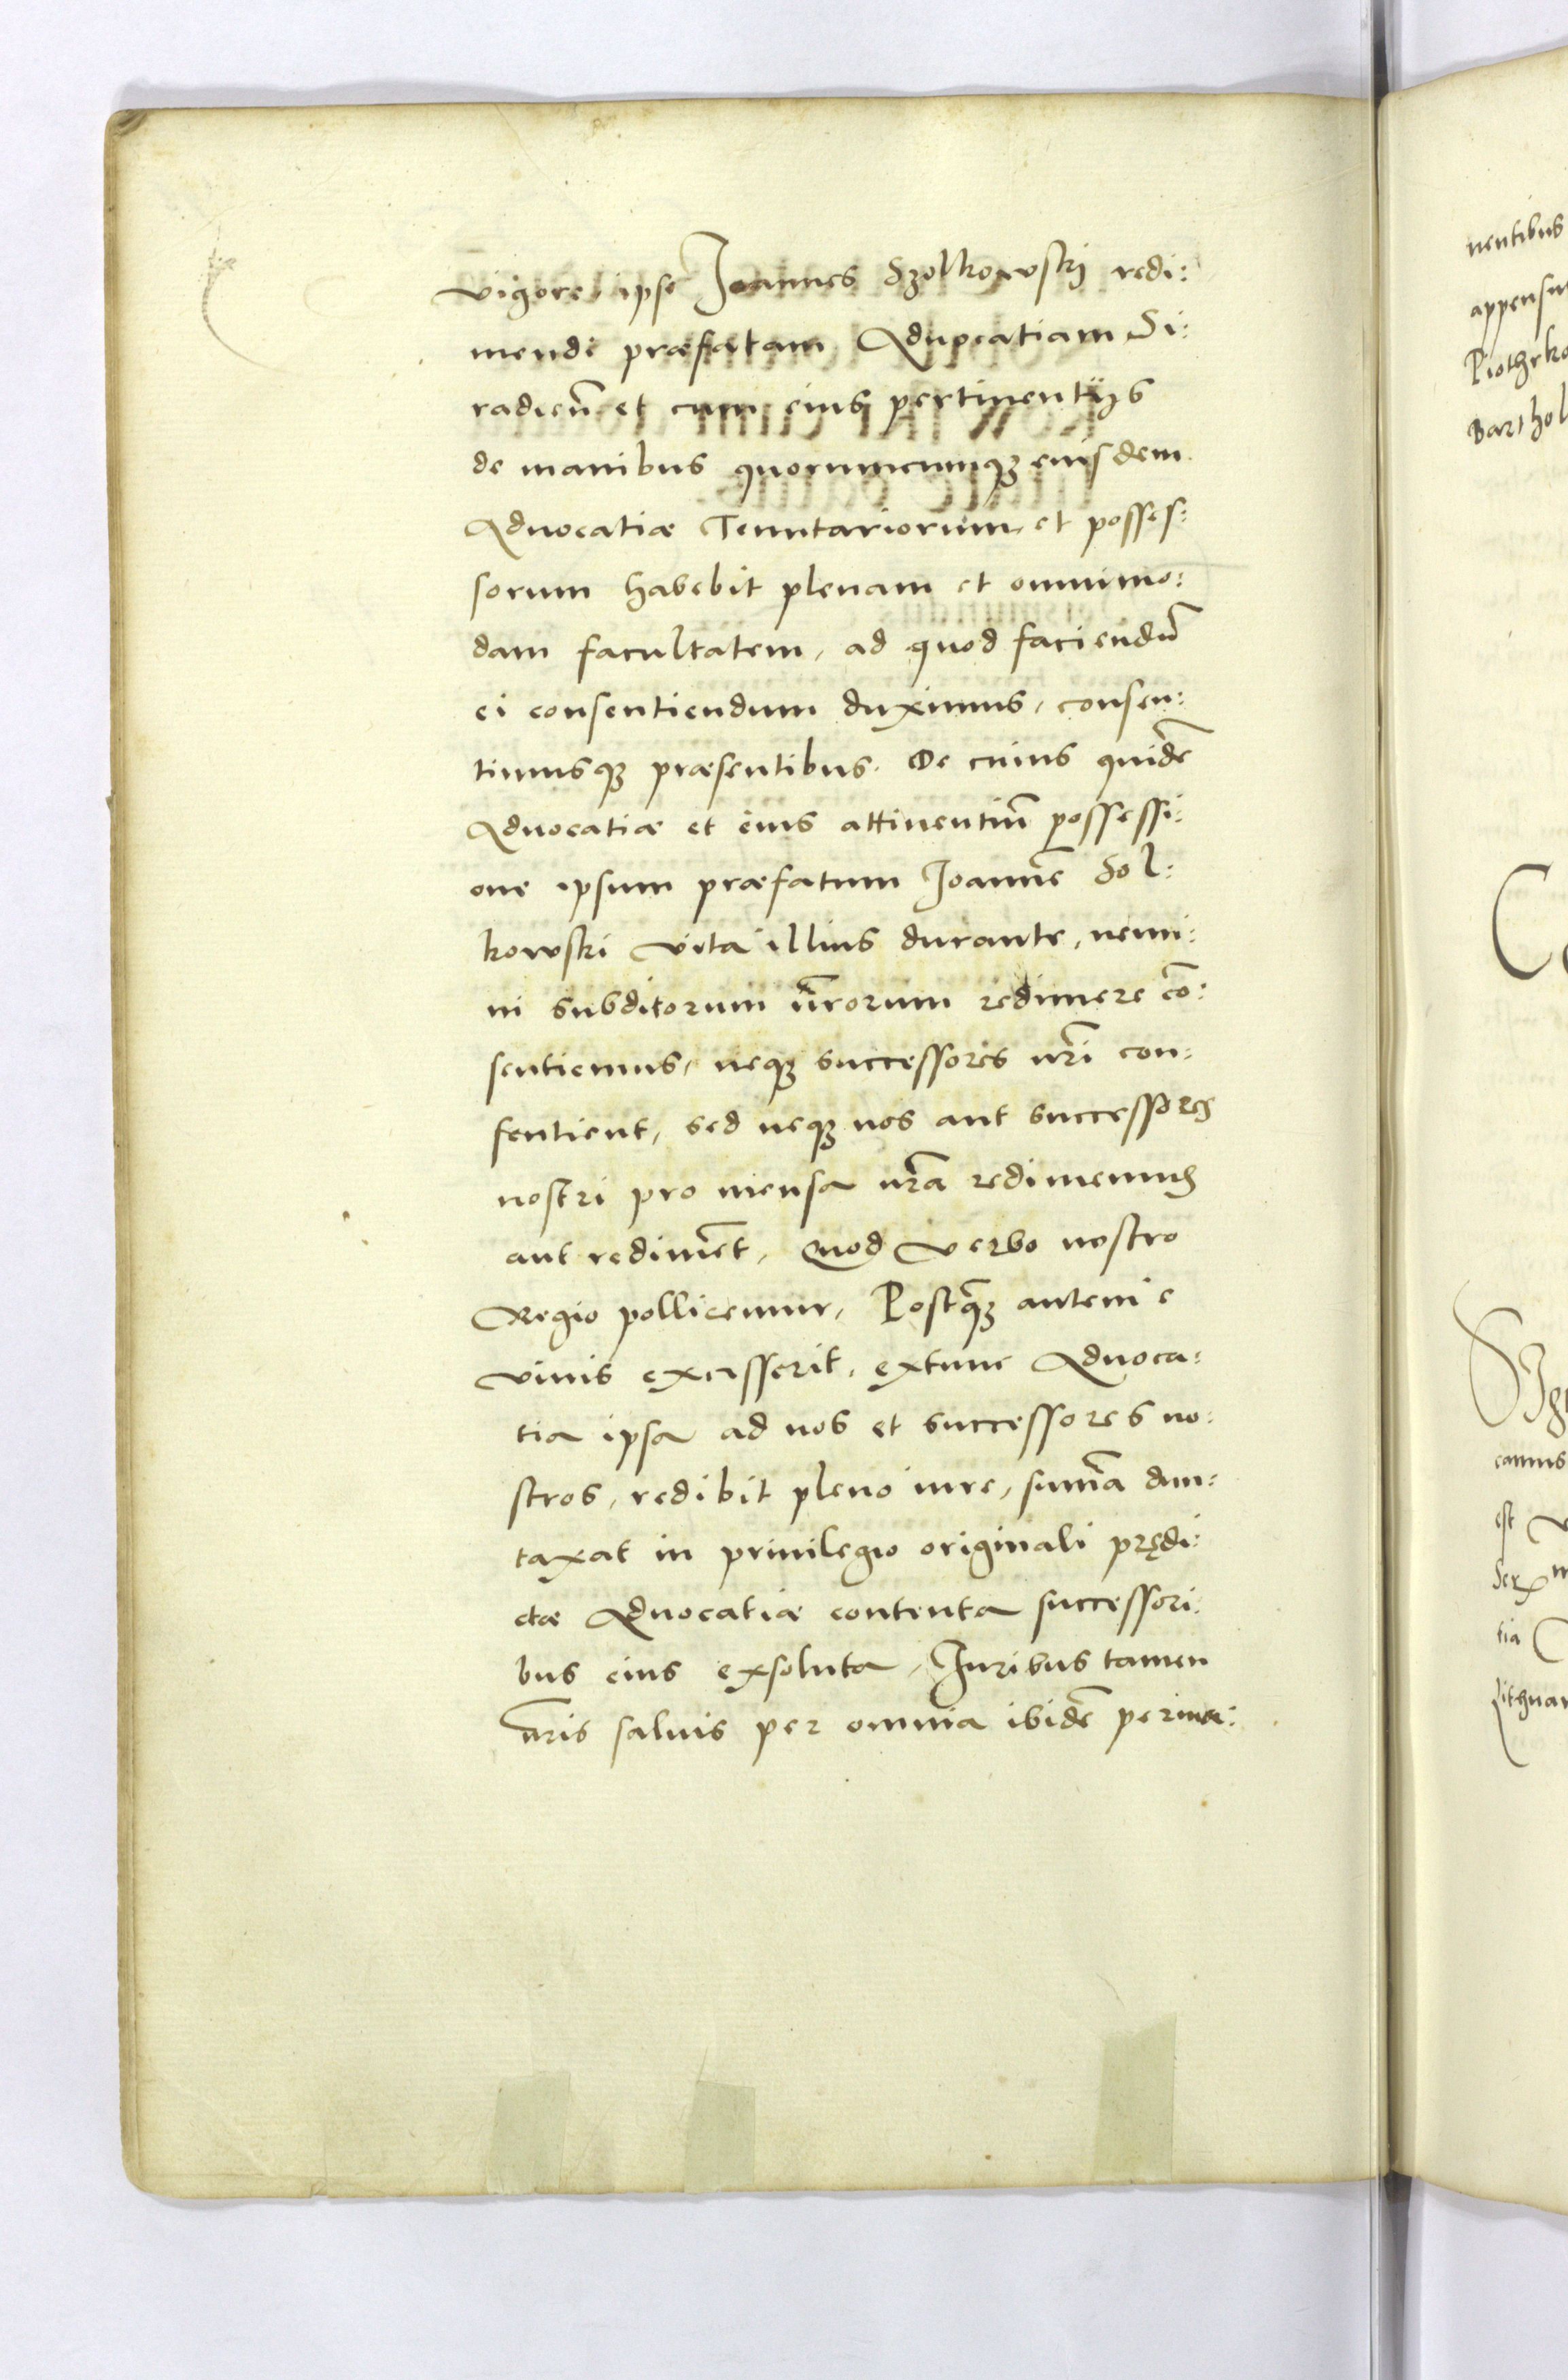 vigore ipse Joannes Szolkowski redi:
mendi præfatam Aduocatiam Si:
radien̄ et cum eius pertinentijs
de manibus quorumcumqꝫ eiusdem
Aduocatiæ Tenutariorum et posses:
sorum habebit plenam et omnimo:
dam facultatem, ad quod faciendū
ei consentiendum duximus, consen:
timusqꝫ præsentibus. De cuius quidē
Aduocatiæ et eius attinentiū possessi:
one ipsum præfatum Joannē Sol:
kowski vita illius durante, nemi:
ni subditorum nr̄orum redimere cō:
sentiemus, neqꝫ successores nr̄i con:
sentient, sed neqꝫ nos aut successores
nostri pro mensa nr̄a redimemus
aut redimēt, Quod verbo nostro
Regio pollicemur, Postqꝫ̄ autem e
viuis excesserit, extunc Aduoca:
tia ipsa ad nos et successores no:
stros, redibit pleno iure, sum̄a dun:
taxat in priuilegio originali prędi:
ctæ Aduocatiæ contenta successori:
bus eius exsoluta, Juribus tamen
nr̄is saluis per omnia ibidē perma:
nentibus
Piothrko
Barthol
est
tia